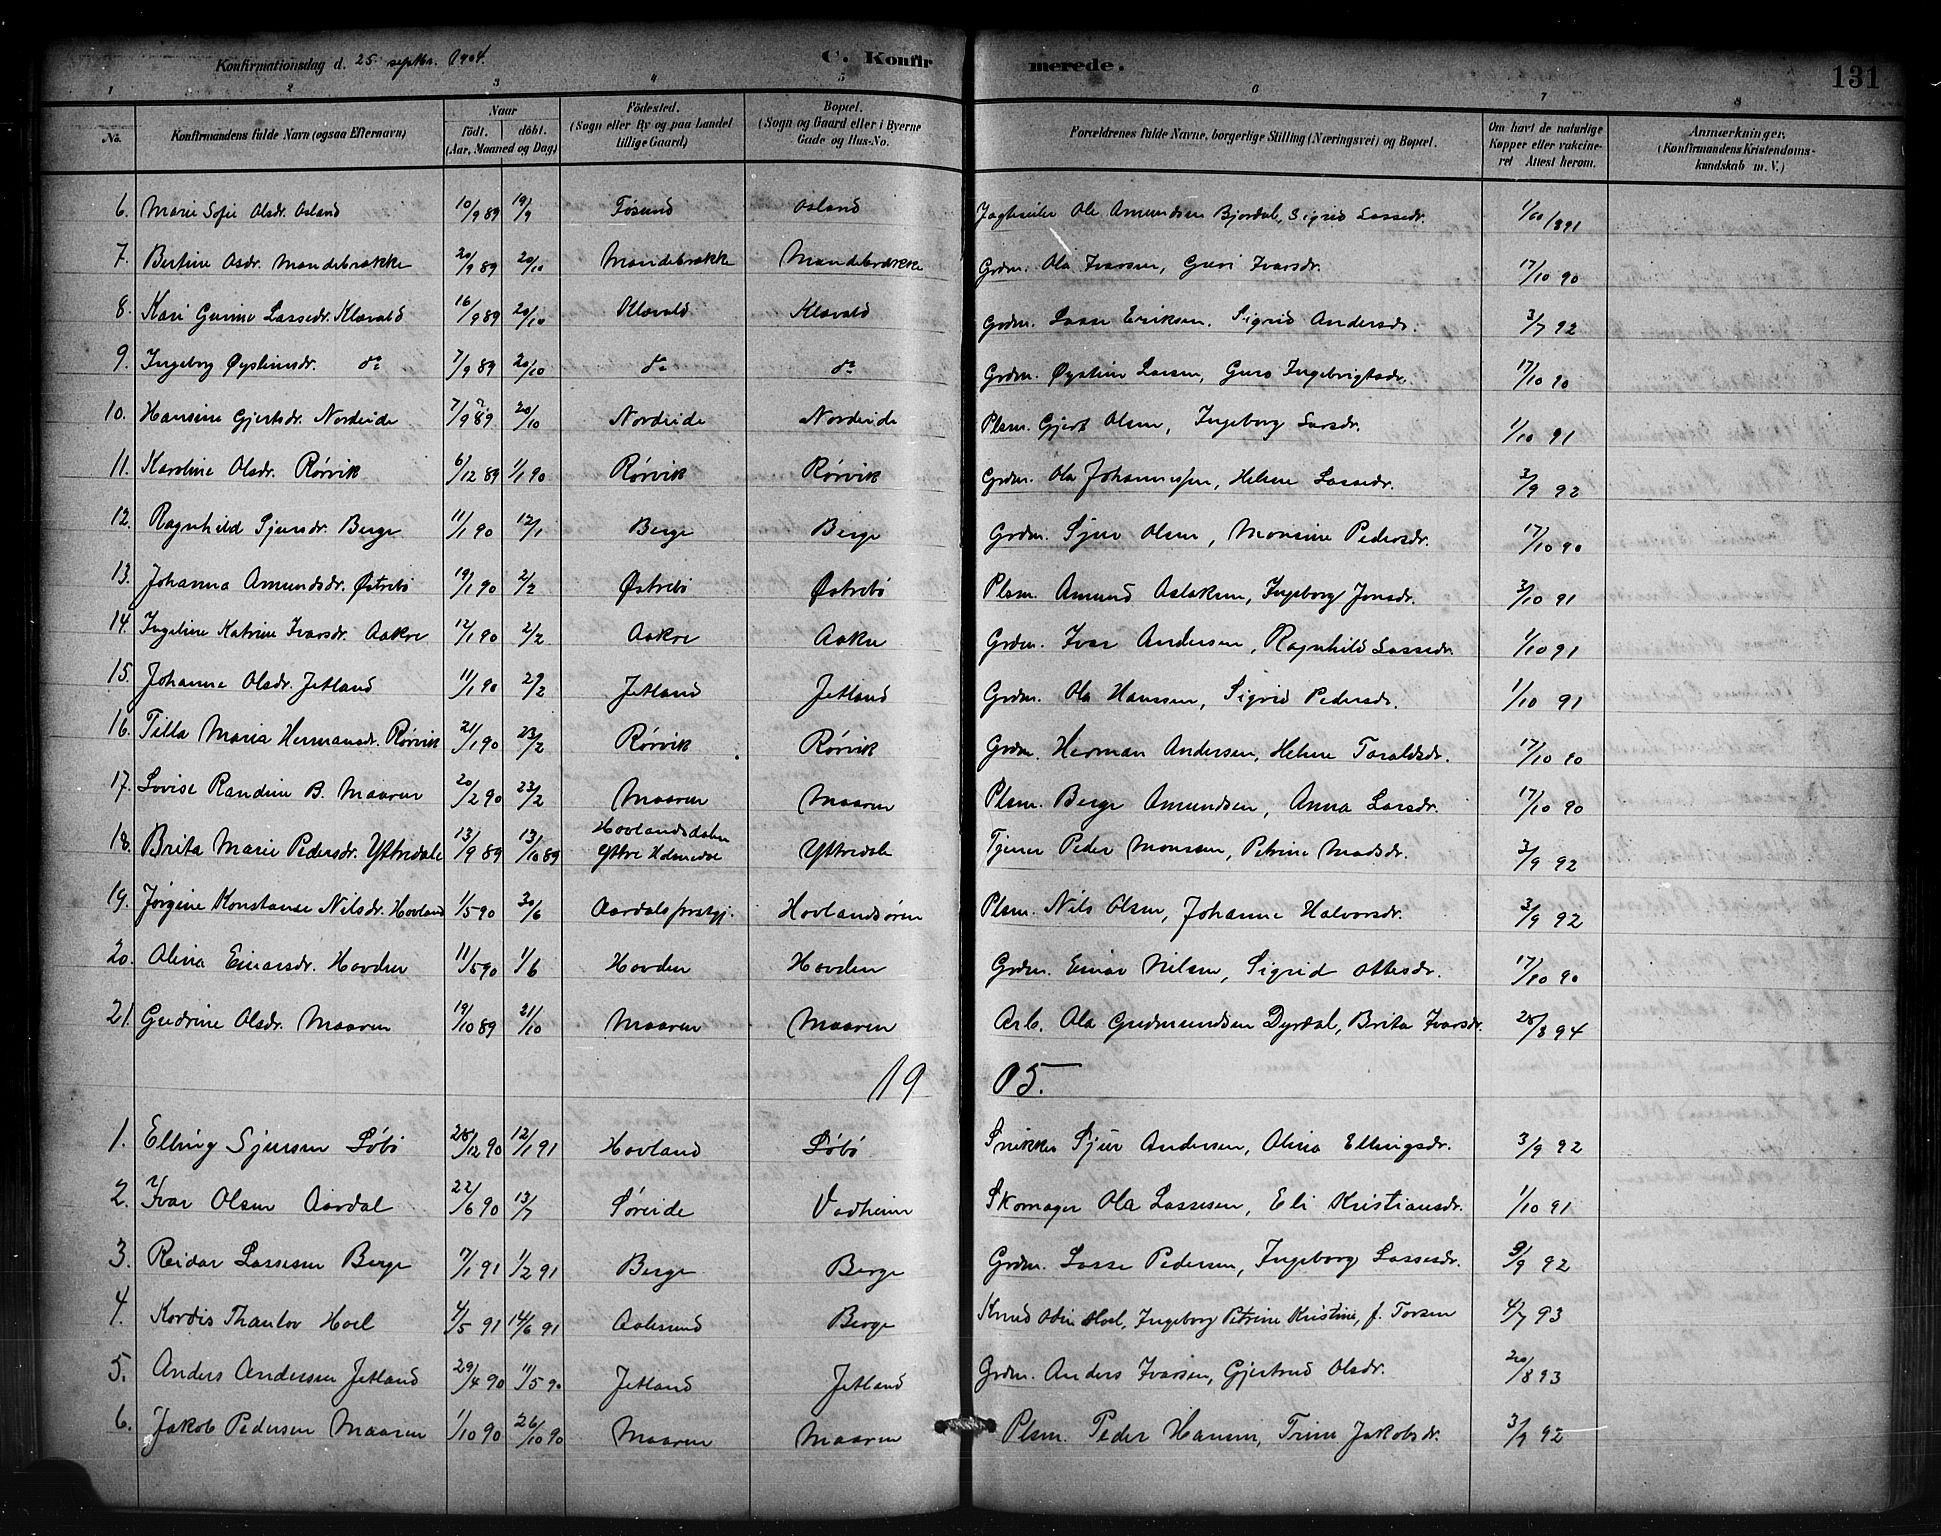 Konfirmationsdag d. 25 septbr. 1904. C. Konfirmerede. 131
1 2 3 4 5 6 7 8
No. Konfirmandens fulde Navn (ogsaa Efternavn) Naar födt. döbt. (Aar, Maaned og Dag) Födested. (Sogn eller By og paa Landet tillige Gaard) Bopæl. (Sogn og Gaard eller i Byerne Gade og Hus-No. Forældrenes fulde Navne, borgerlige Stilling (Næringsvei) og Bopæl. Om havt de naturlige Kopper eller vakcineret Attest herom. Anmærkninger. (Konfirmandens Kristendomskundskab m. V.)
6. Marie Sofie Olsdr. Osland 10/9 89 19/9 Fösund Osland Ola Amundsen Bjordal, Sigrid Lassedr.
7. Bertine Osdr. Mandebrække 20/9 89 20/10 Mandebrække Mandebrække Grdm. Ola Ivarsen, Guri Ivarsdr. 17/10 90
8. Kari Gurine Lassedr. Klævold 16/9 89 20/10 Klævold Klævold Grdm. Lasse Eriksen, Sigrid Andersdr. 3/7 92
9. Ingeborg Øystinsdr. do 7/9 89 20/10 do do Grdm. Øystein Larsen, Guro Ingebrigtsdr. 17/10 90
10. Hansine Gjertsdr. Nordeide 7/9 89 20/10 Nordeide Nordeide Plsm. Gjert Olsen, Ingeborg Larsdr. 1/10 91
11. Karoline Olsdr. Rørvik 6/12 89 1/1 90 Rørvik Rørvik Grdm. Ola Johannessen, Helene Lassedr. 3/9 92
12. Ragnhild Sjursdr. Berge 11/1 90 12/1 Berge Berge Grdm. Sjur Olsen, Monsine Pedersdr. 17/10 90
13. Johanna Amundsdr. Østrebö 19/1 90 2/2 Østrebö Østrebö Plsm. Amund Aslaksen, Ingeborg Jonsdr. 3/10 91
14. Ingeline Katrine Ivarsdr. Aakre 12/1 90 2/2 Aakre Aakre Grdm. Ivar Andersen, Ragnhild Lassedr. 1/10 91
15. Johanne Olsdr. Jetland 11/1 90 2/2 Jetland Jetland Grdm. Ola Hanssen, Sigrid Pedersdr. 1/10 91
16. Tilla Maria Hermansdr. Rørvik 21/1 90 23/2 Rørvik Rørvik Grdm. Herman Andersen, Helene Taraldsdr. 17/10 90
17. Lovise Randine B. Maaren 20/2 90 23/2 Maaren Maaren Plsm. Berge Amundsen, Anna Larsdr. 17/10 90
18. Brita Marie Pedersdr. Yttredale 13/9 89 13/10 89 Hovlandsdalen Yttre Holmedal Yttredale Tjener Peder Monssen, Petrine Madsdr. 3/9 92
19. Jørgine Konstanse Nilsdr. Hovland 1/5 90 30/6 Aardals prstgj. Hovlandsören Plsm. Nils Olsen, Johanne Halvorsdr. 3/9 92
20. Alina Einarsdr. Hovden 11/5 90 1/6 Hovden Hovden Grdm. Einar Nilsen, Sigrid Ottesdr. 17/10 90
21. Gudrine Olsdr. Maaren 19/10 89 21/10 Maaren Maaren Arb. Ola Gudmundsen Dyrdal, Brita Ivarsdr. 25/8 94
1905.
1. Elling Sjursen Löbö 25/12 90 12/1 91 Hovland Löbö Snikker Sjur Andersen, Alina Ellingsdr. 3/9 92
2. Ivar Olsen Aardal 22/6 90 13/7 Söreide Vadheim Skomager Ola Lassesen, Eli Kristiansdr. 1/10 91
3. Reidar Lassesen Berge 7/1 91 1/2 91 Berge Berge Grdm. Lasse Pedersen, Ingeborg Lassesdr. 3/9 92
4. Kordis Thaulov Hoel 4/5 91 14/6 91 Aalesund Berge Knud Odin Hoel, Ingeborg Petrine Kristine, f. Torsen 4/7 93
5. Anders Andersen Jetland 29/4 90 11/5 90 Jetland Jetland Grdm. Anders Ivarsen, Gjertrud Olsdr. 20/8 93
6. Jakob Pedersen Maaren 1/10 90 26/10 90 Maaren Maaren Plsm. Peder Hansen, Trine Jakobsdr. 3/9 92